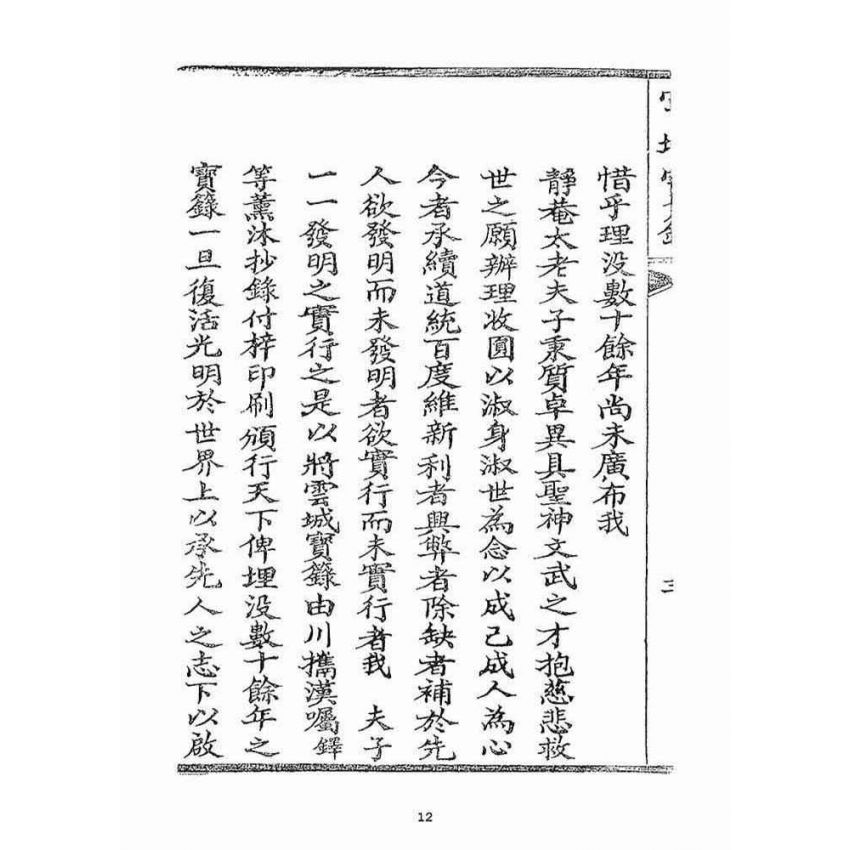 三
惜乎理没數十餘年尚未廣布我
靜菴太老夫子秉質卓異具聖神文武之才抱慈悲救
世之願辦理收圓以淑身淑世為念以成己成人為心
今者承續道統百度維新利者興弊者除缺者補於先
人欲發明而未發明者欲實行而未實行者我　夫子
一一發明之實行之是以將雲城寶籙由川攜漢囑鐸
等薰沐抄錄付梓印刷頒行天下俾埋没數十餘年之
寶籙一旦復活光明於世界上以承先人之志下以啟
12